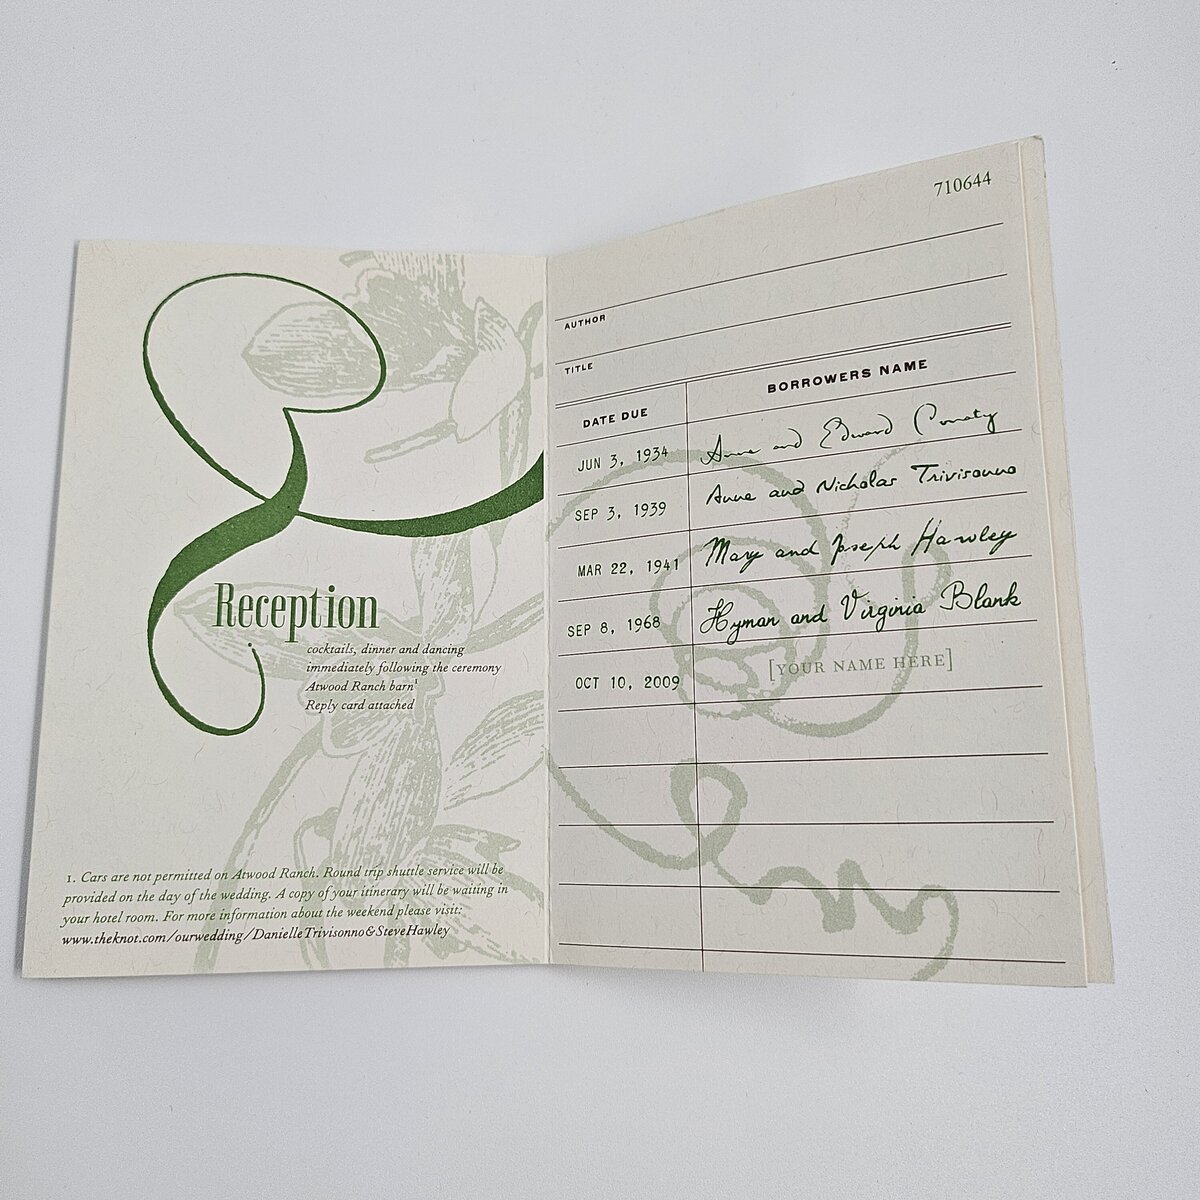 Reception
cocktails, dinner and dancing
immediately following the ceremony
Atwood Ranch barn¹
Reply card attached
1. Cars are not permitted on Atwood Ranch. Round trip shuttle service will be
provided on the day of the wedding. A copy of your itinerary will be waiting in
your hotel room. For more information about the weekend please visit:
www.theknot.com/ourwedding/DanielleTrivisonno&SteveHawley
710644
AUTHOR
TITLE
DATE DUE BORROWERS NAME
JUN 3, 1934 Anne and Edward
SEP 3, 1939 Anne and Nicholas Trivisonno
MAR 22, 1941 Mary and Joseph Hawley
SEP 8, 1968 Hyman and Virginia Blank
OCT 10, 2009 [YOUR NAME HERE]